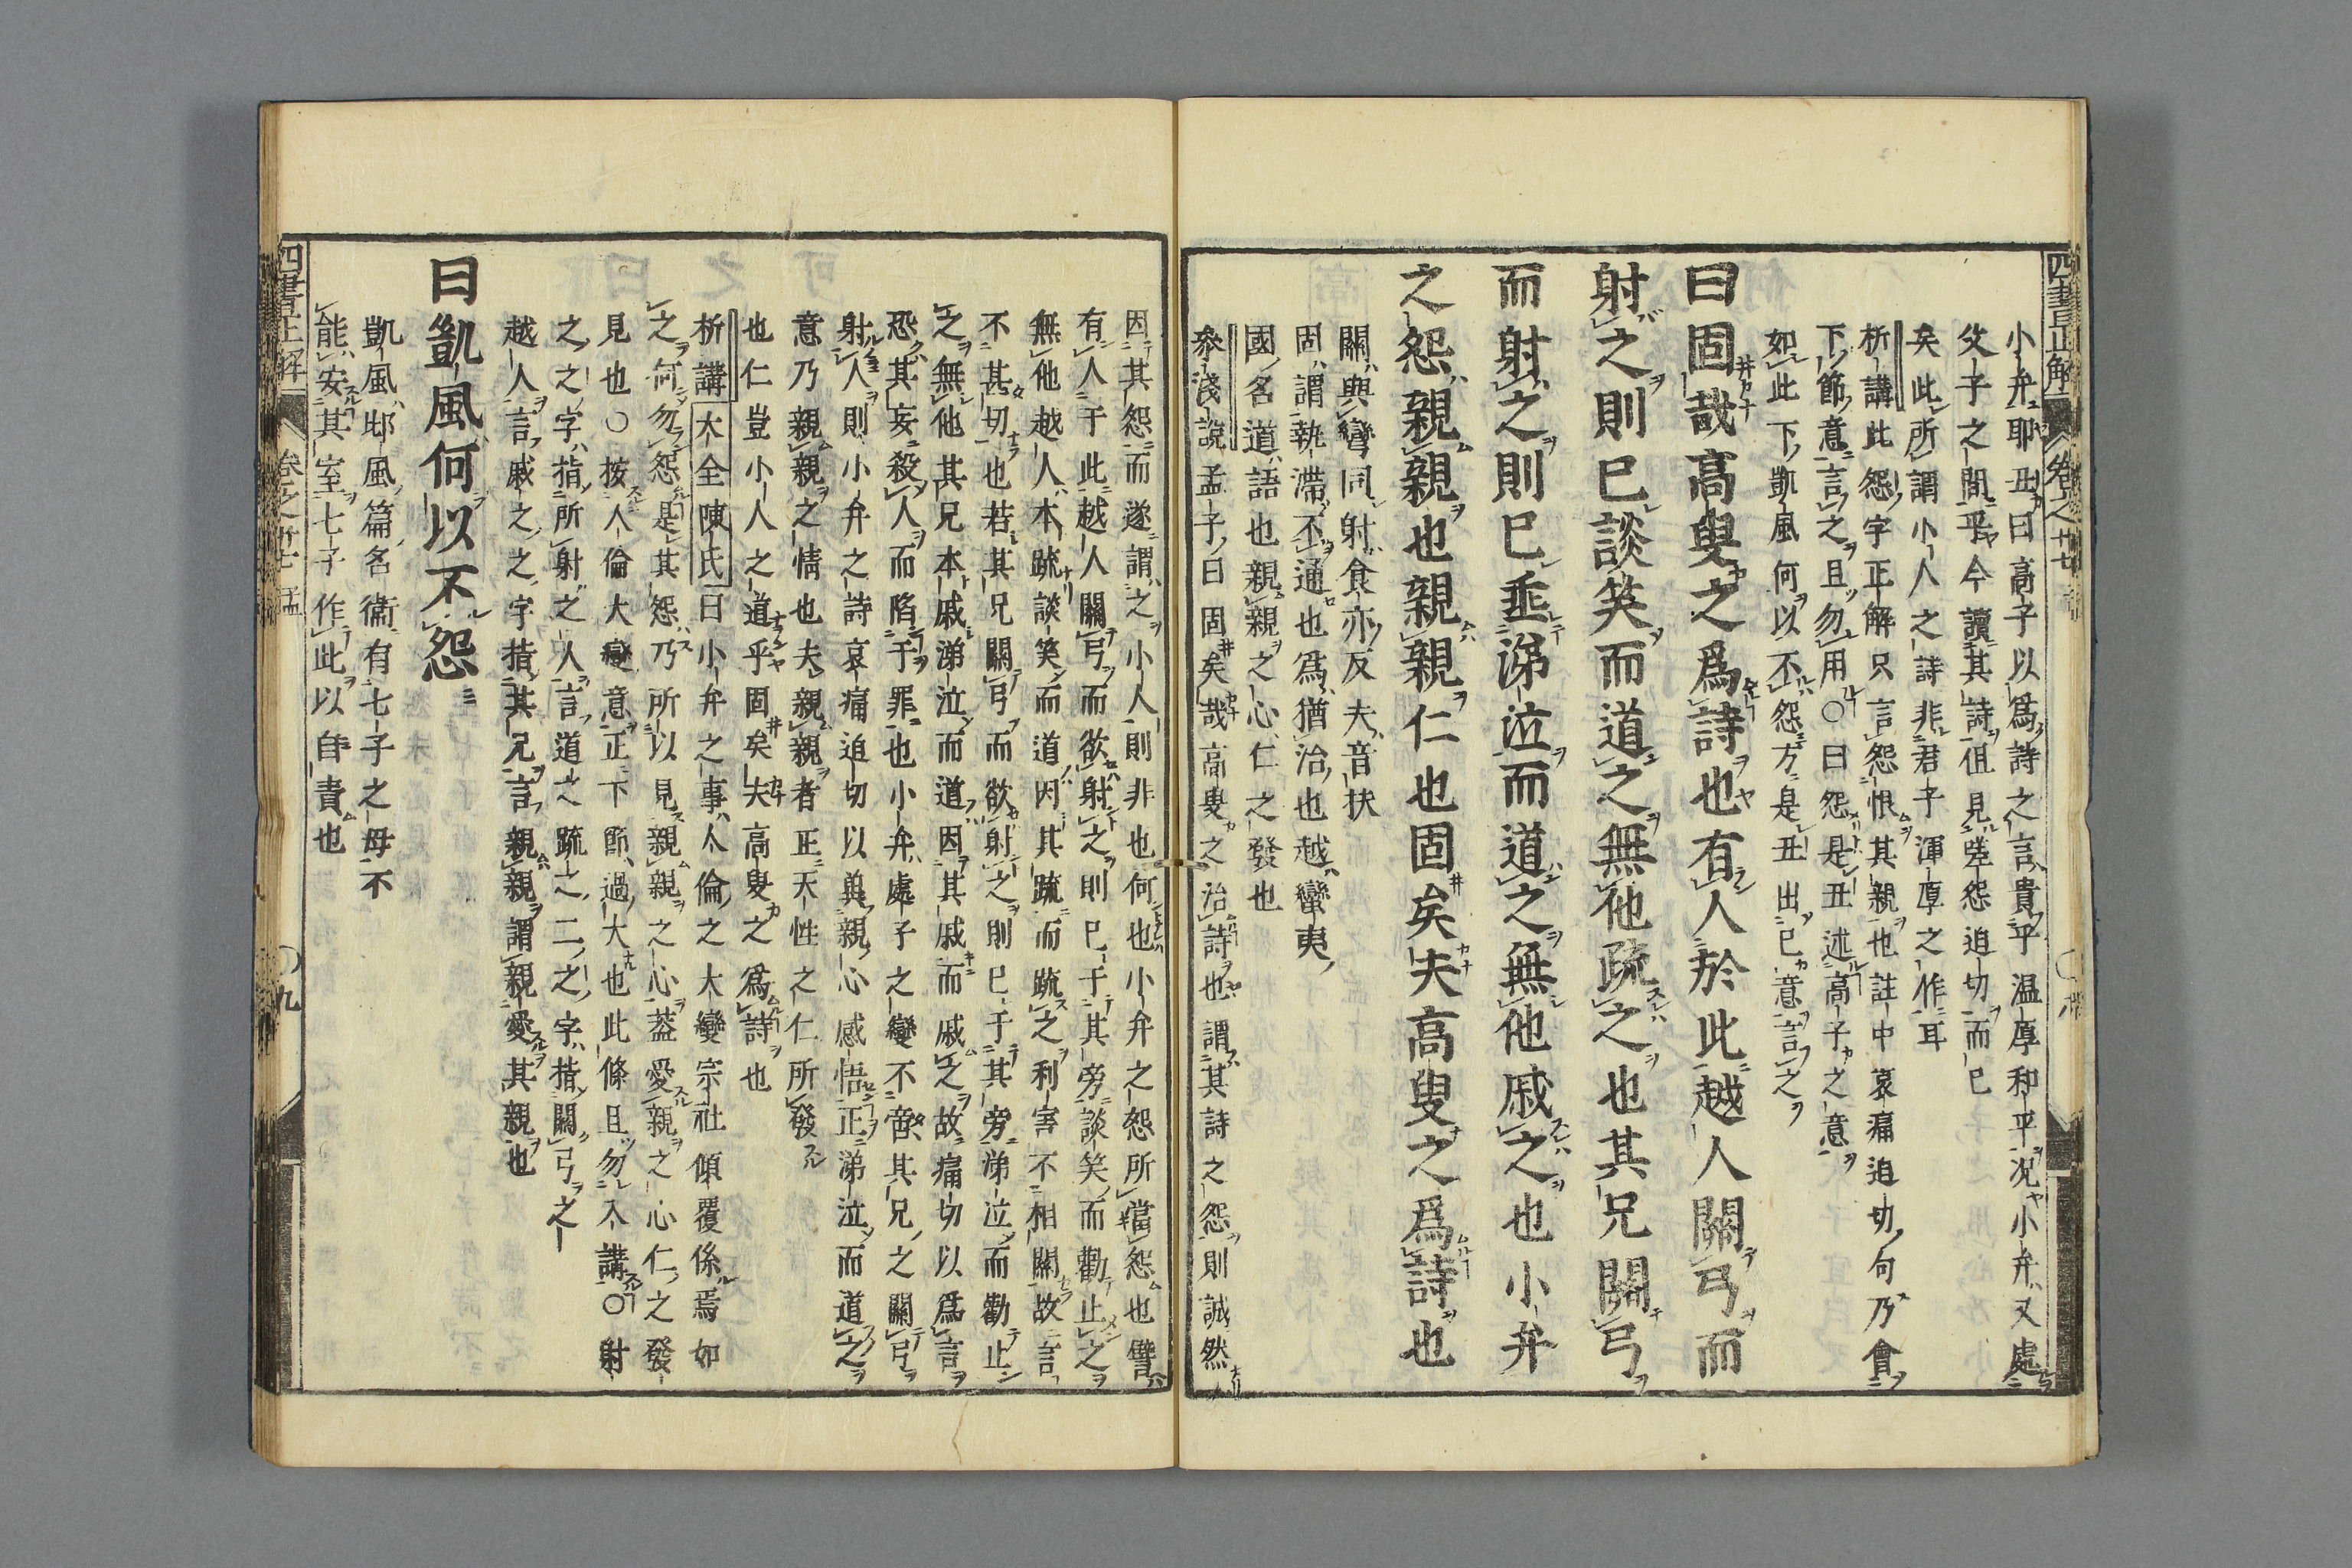 四書正解
卷之廿七
小弁耶丑曰高子以爲詩之言貴乎温厚和平况小弁又處
父子之間乎今讀其詩但見嗟怨迫切而已
矣此所謂小人之詩非君子渾厚之作耳
析講此怨字正解只言怨恨其親也註中哀痛迫切句乃會
下節意言之且勿用○曰怨是丑述高子之意
如此下凱風何以不怨方是丑出己意言之
曰固哉高叟之爲詩也有人於此越人關弓而
射之則已談笑而道之無他疏之也其兄關弓
而射之則已垂涕泣而道之無他戚之也小弁
之怨親親也親親仁也固矣夫高叟之爲詩也
關與彎同射食亦反夫音扶
固謂執滯不通也爲猶治也越蠻夷
國名道語也親親之心仁之發也
參淺説孟子曰固矣哉高叟之治詩也謂其詩之怨則誠然
因其怨而遂謂之小人則非也何也小弁之怨所當怨也譬
有人于此越人關弓而欲射之則已于其旁談笑而勸止之
無他越人本疏談笑而道因其疏而疏之利害不相關故言
不甚切也若其兄關弓而欲射之則已于其旁涕泣而勸止
之無他其兄本戚涕泣而道因其戚而戚之故痛切以爲言
恐其妄殺人而陷于罪也小弁處子之變不啻其兄之關弓
射人則小弁之詩哀痛迫切以冀親心感悟正涕泣而道之
意乃親親之情也夫親親者正天性之仁所發
也仁豈小人之道乎固矣夫高叟之爲詩也
析講大全陳氏曰小弁之事人倫之大變宗社傾覆係焉如
之何勿怨是其怨乃所以見親親之心蓋愛親之心仁之發
見也○按人倫大變意正下節過大也此條且勿入講○射
之之字指所射之人言道之疏之二之字指關弓之
越人言戚之之字指其兄言親親謂親愛其親也
曰凱風何以不怨
凱風邶風篇名衞有七子之母不
能安其室七子作此以自責也
四書正解
卷之廿七 孟
○九